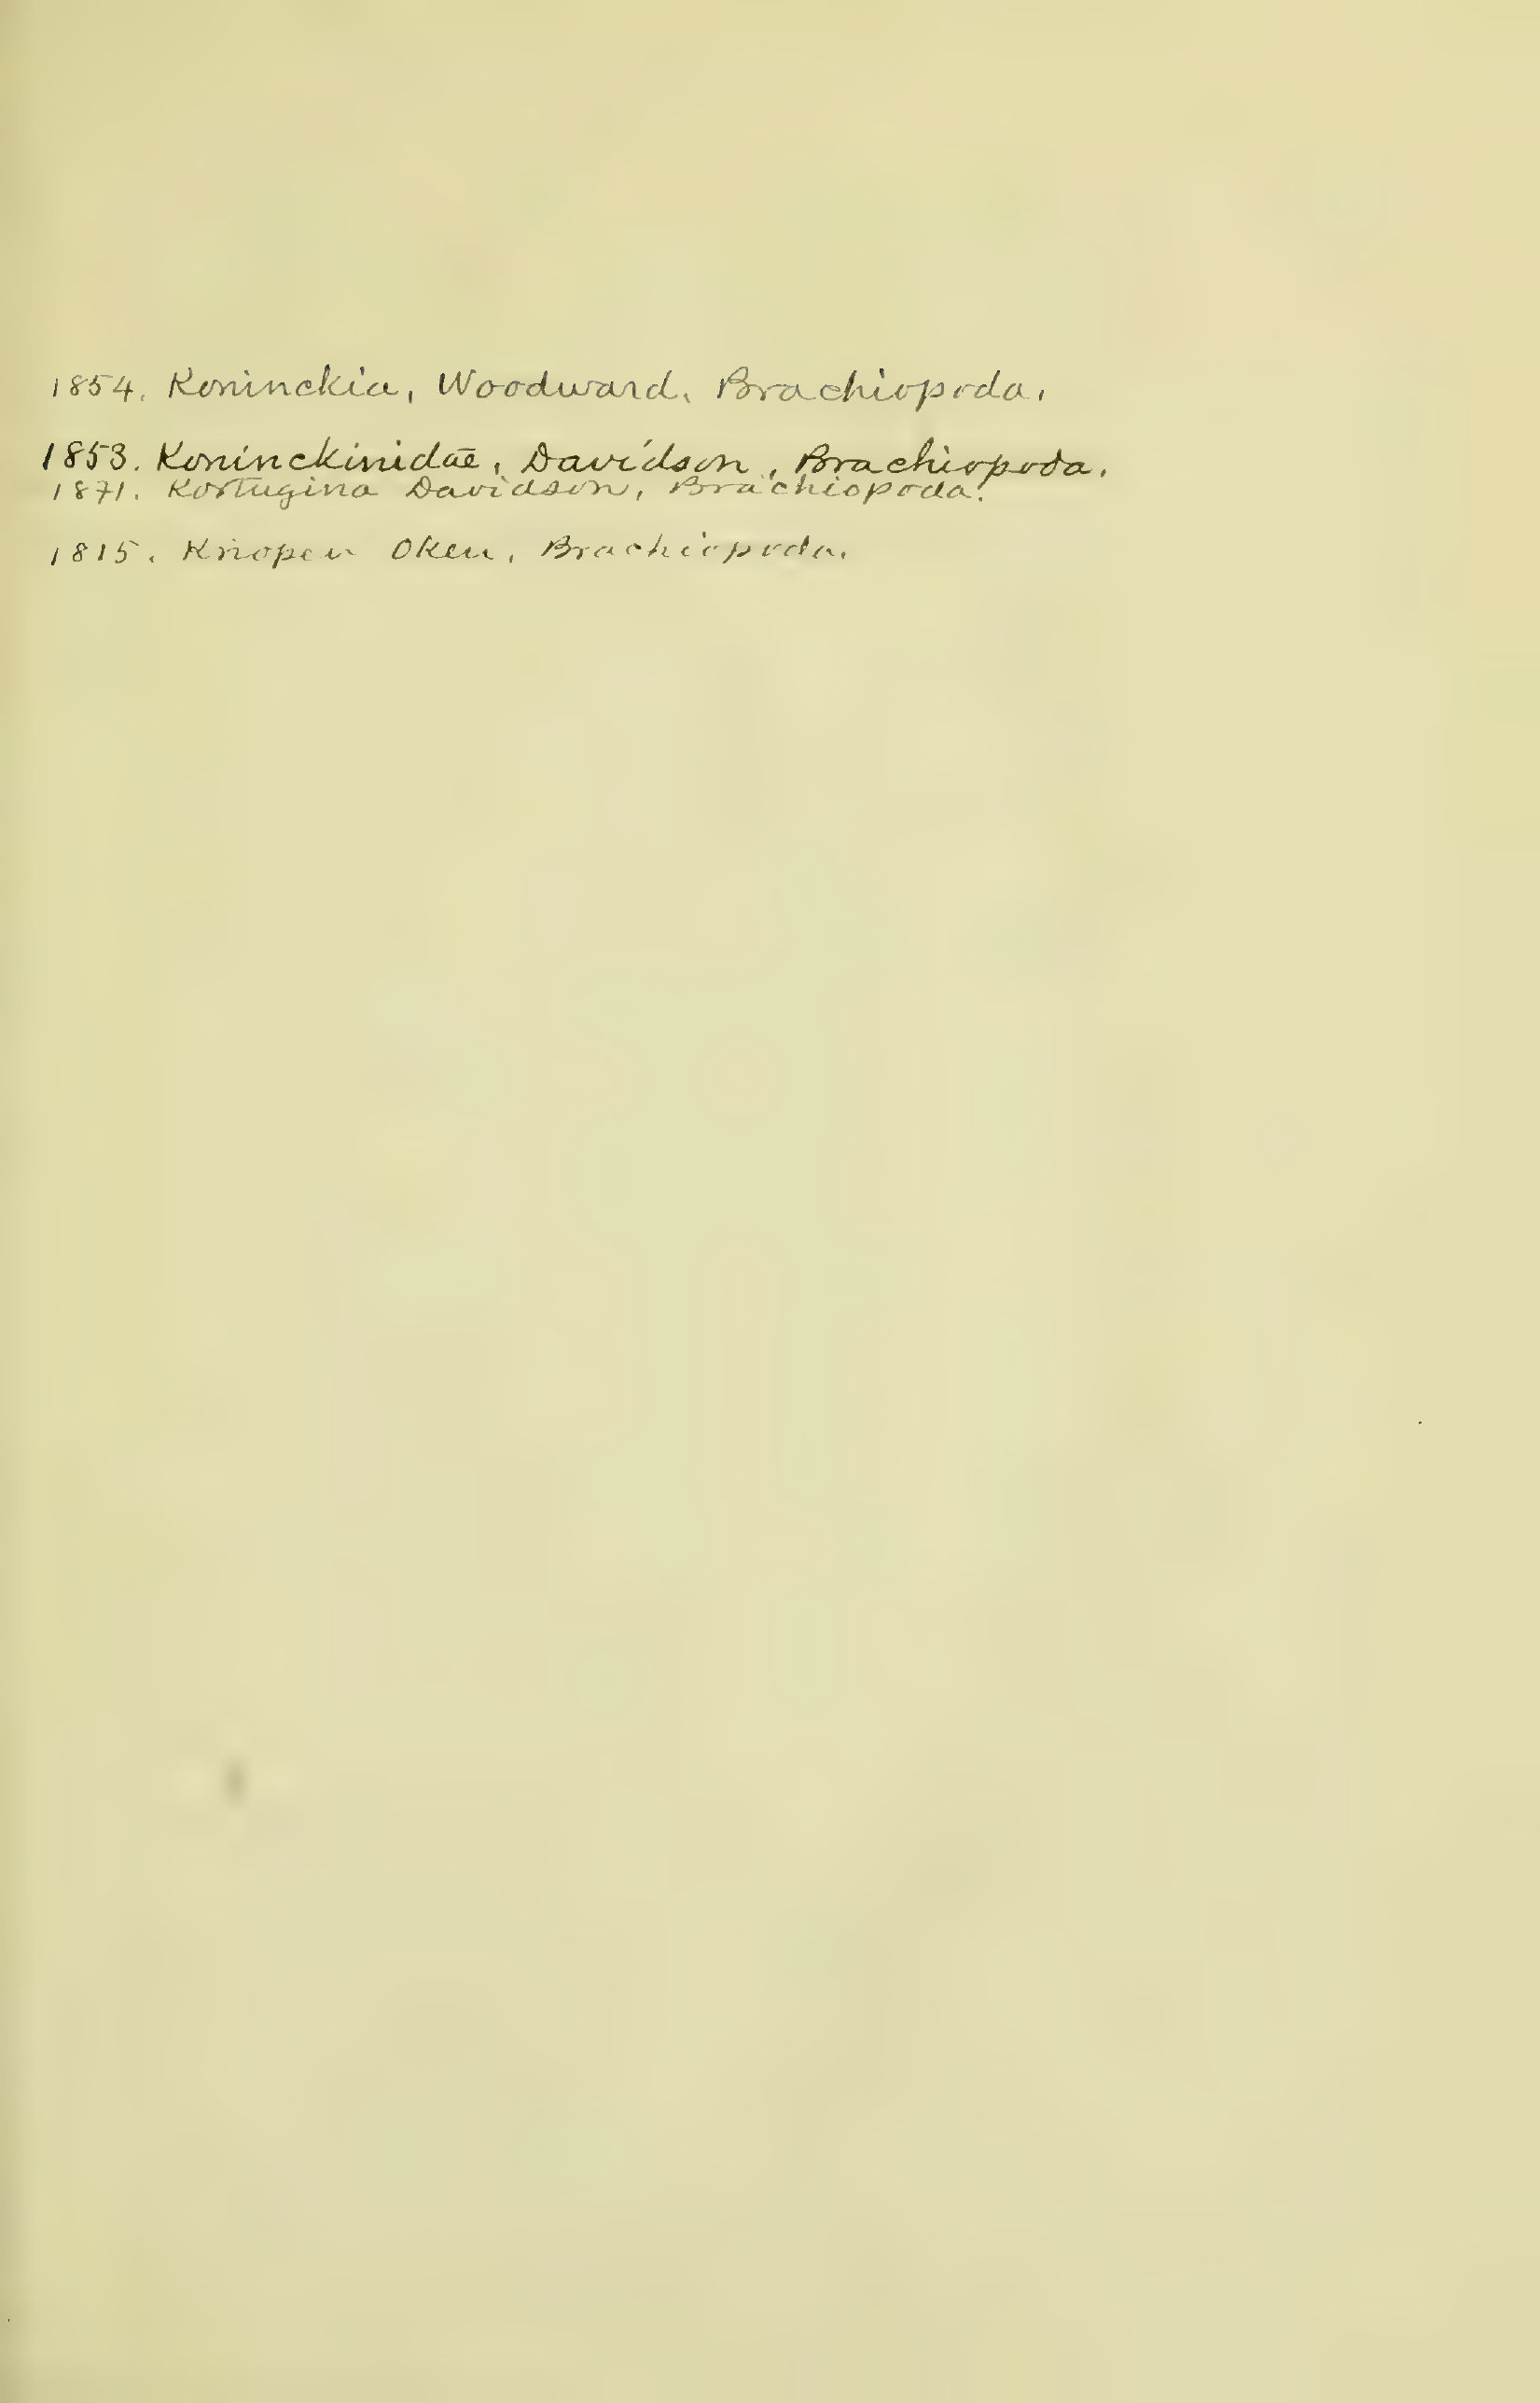 1854. Koninckia, Woodward, Brachiopoda.
1853. Koninckinidae, Davidson, Brachiopoda.
1871. Kortugina Davidson, Brachiopoda.
1815. Knopen Oken, Brachiopoda.